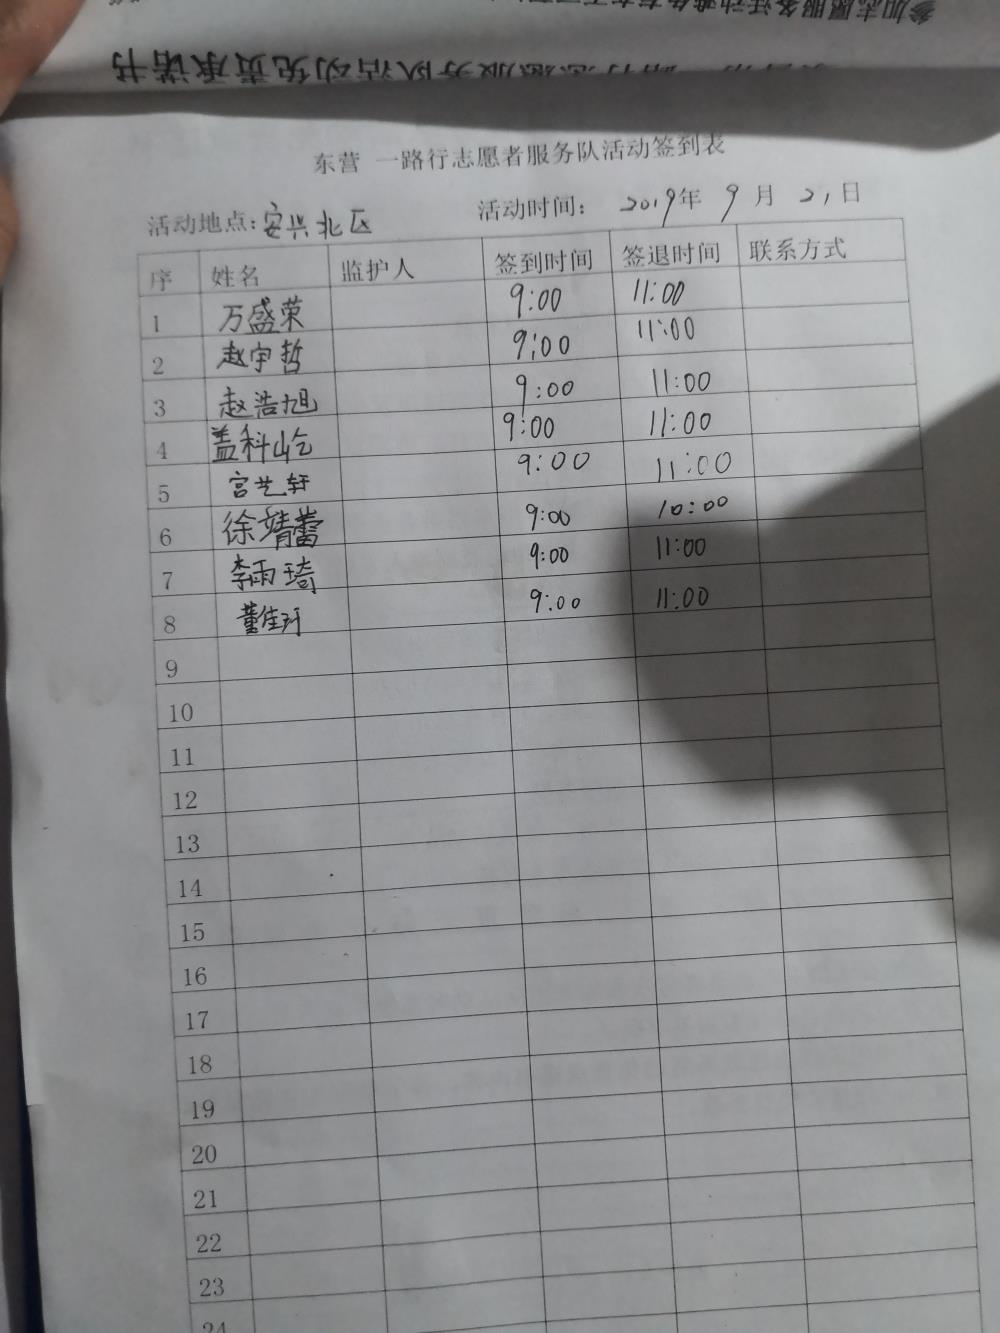 参加志愿服务活动难免存在不可
志愿服务队活动免责承诺书
东营 一路行志愿者服务队活动签到表
活动地点:安兴北区 活动时间: 2019年 9月 21日
序 姓名 监护人 签到时间 签退时间 联系方式
1 万盛荣 9:00 11:00
2 赵宇哲 9:00 11:00
3 赵浩旭 9:00 11:00
4 盖科屹 9:00 11:00
5 宫艺轩 9:00 11:00
6 徐婧蕾 9:00 10:00
7 李雨琦 9:00 11:00
8 董佳玗 9:00 11:00
9
10
11
12
13
14
15
16
17
18
19
20
21
22
23
24